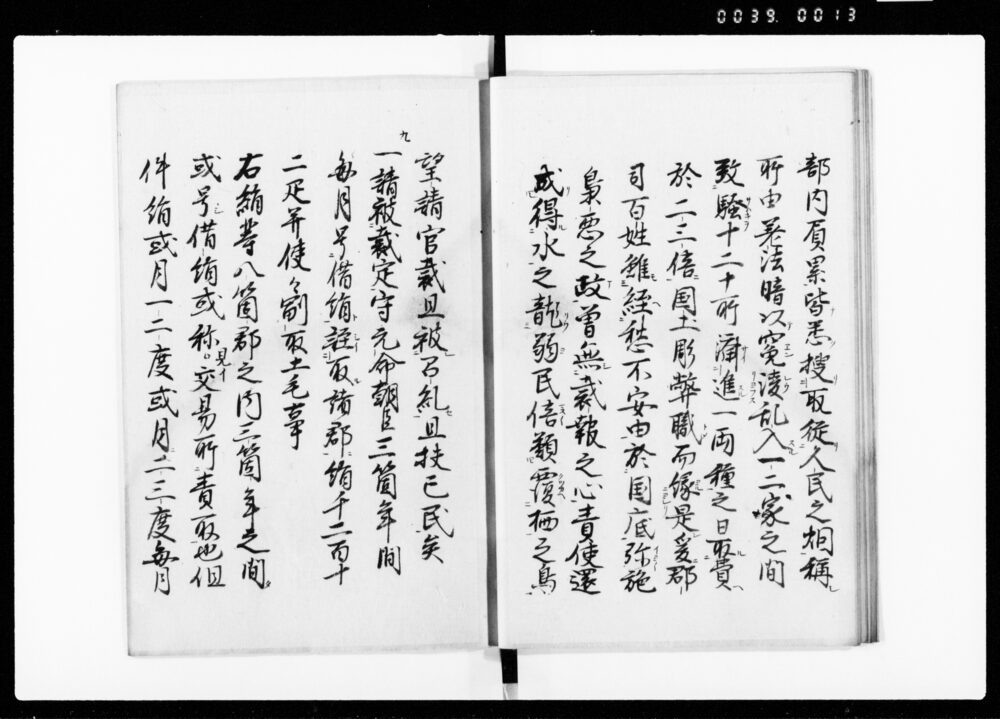 0039. 0013
部内負累皆悉搜取従人民之烟称
所由若法暗以寃凌乱入一二家之間
致騒十二十所済進一両種之日取費
於二三倍国土彫弊職而縁是爰郡
司百姓雖経愁不安由於国底弥施
梟悪之政曽無裁報之心責使還
或得水之龍弱民倍類覆栖之鳥
望請官裁且被召糺且扶已民矣
九
一請被裁定守元命朝臣三箇年間
毎月号借絹誣取諸郡絹千二百十
二疋并使々副取土毛事
右絹等八箇郡之内三箇年之間
或号借絹或称。交易所責取也但
見イ
件絹或月一二度或月二三度毎月